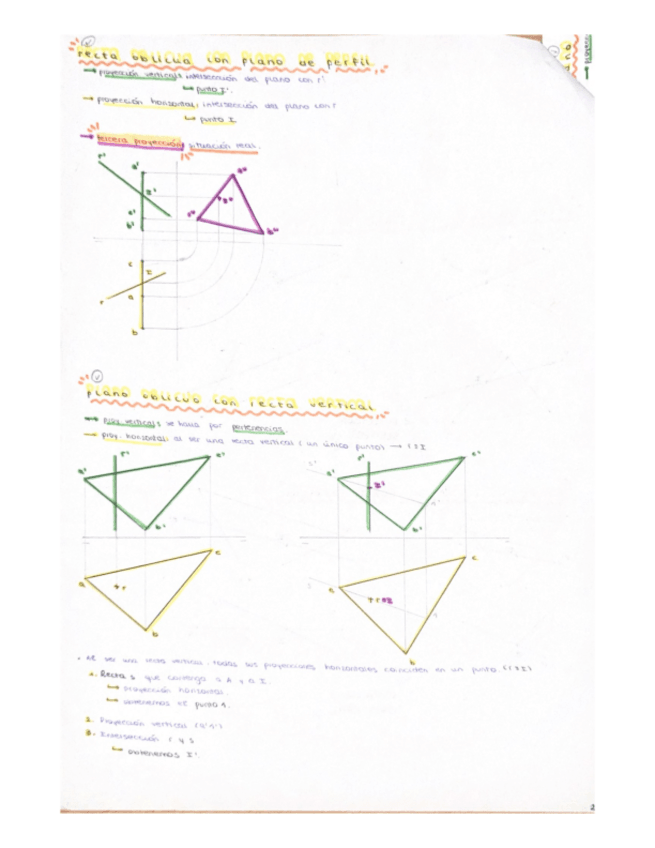 recta oblicua con plano de perfil.
→ proyección vertical: intersección del plano con r'
↳ punto I'.
→ proyección horizontal: intersección del plano con r
↳ punto I.
→ tercera proyección: situación real.
r' a'
I'
c'
b'
a"
I"
c" b"
c
I
r a
b
plano oblicuo con recta vertical
→ proy. vertical: se halla por pertenencias
→ proy. horizontal: al ser una recta vertical (un único punto) → r≡I
a' r' c'
b'
a r c
b
a' r' c'
I'
b'
a r≡I c
b
• Al ser una recta vertical, todas sus proyecciones horizontales coinciden en un punto. (r≡I)
1. Recta s que contenga a A y a I.
↳ proyección horizontal.
↳ obtenemos el punto 1.
2. Proyección vertical (a'1')
3. Intersección r y s
↳ obtenemos I'.
2